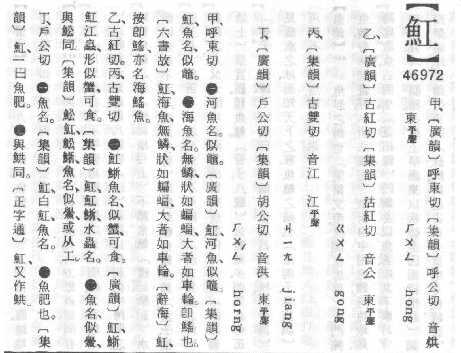 【魟】
46972
甲、〔廣韻〕呼東切〔集韻〕呼公切　音烘
東平聲　ㄏㄨㄥ　hong
乙、〔廣韻〕古紅切〔集韻〕沽紅切　音公　東平聲
ㄍㄨㄥ　gong
丙、〔集韻〕古雙切　音江　江平聲
ㄐㄧㄤ　jiang
丁、〔廣韻〕戶公切〔集韻〕胡公切　音洪　東平聲
ㄏㄨㄥ　horng
甲、呼東切　㊀河魚名似鼈。〔廣韻〕魟、河魚似鼈。〔集韻〕
魟、魚名、似鼈。㊁海魚名、無鱗、狀如蝙蝠、大者如車輪、卽鰩也。
〔六書故〕魟、海魚、無鱗、狀如蝙蝠、大者如車輪。〔辭海〕魟、
按卽鰩、亦名海鰩魚。
乙、古紅切。丙、古雙切　㊀魟䱛、魚名、似蟹、可食。〔廣韻〕魟䱛、
魟、江蟲、形似蟹、可食。〔集韻〕魟、魟䱛、水蟲名。㊁魚名、似鱟、
與䲲同。〔集韻〕䲲、魟䲲、䱛魚名、似鱟、或从工。
丁、戶公切　㊀魚名。〔集韻〕魟、白魟、魚名。㊁魚肥也。〔集
韻〕魟、一曰魚肥。㊂與鉷同。〔正字通〕魟、又作鉷。